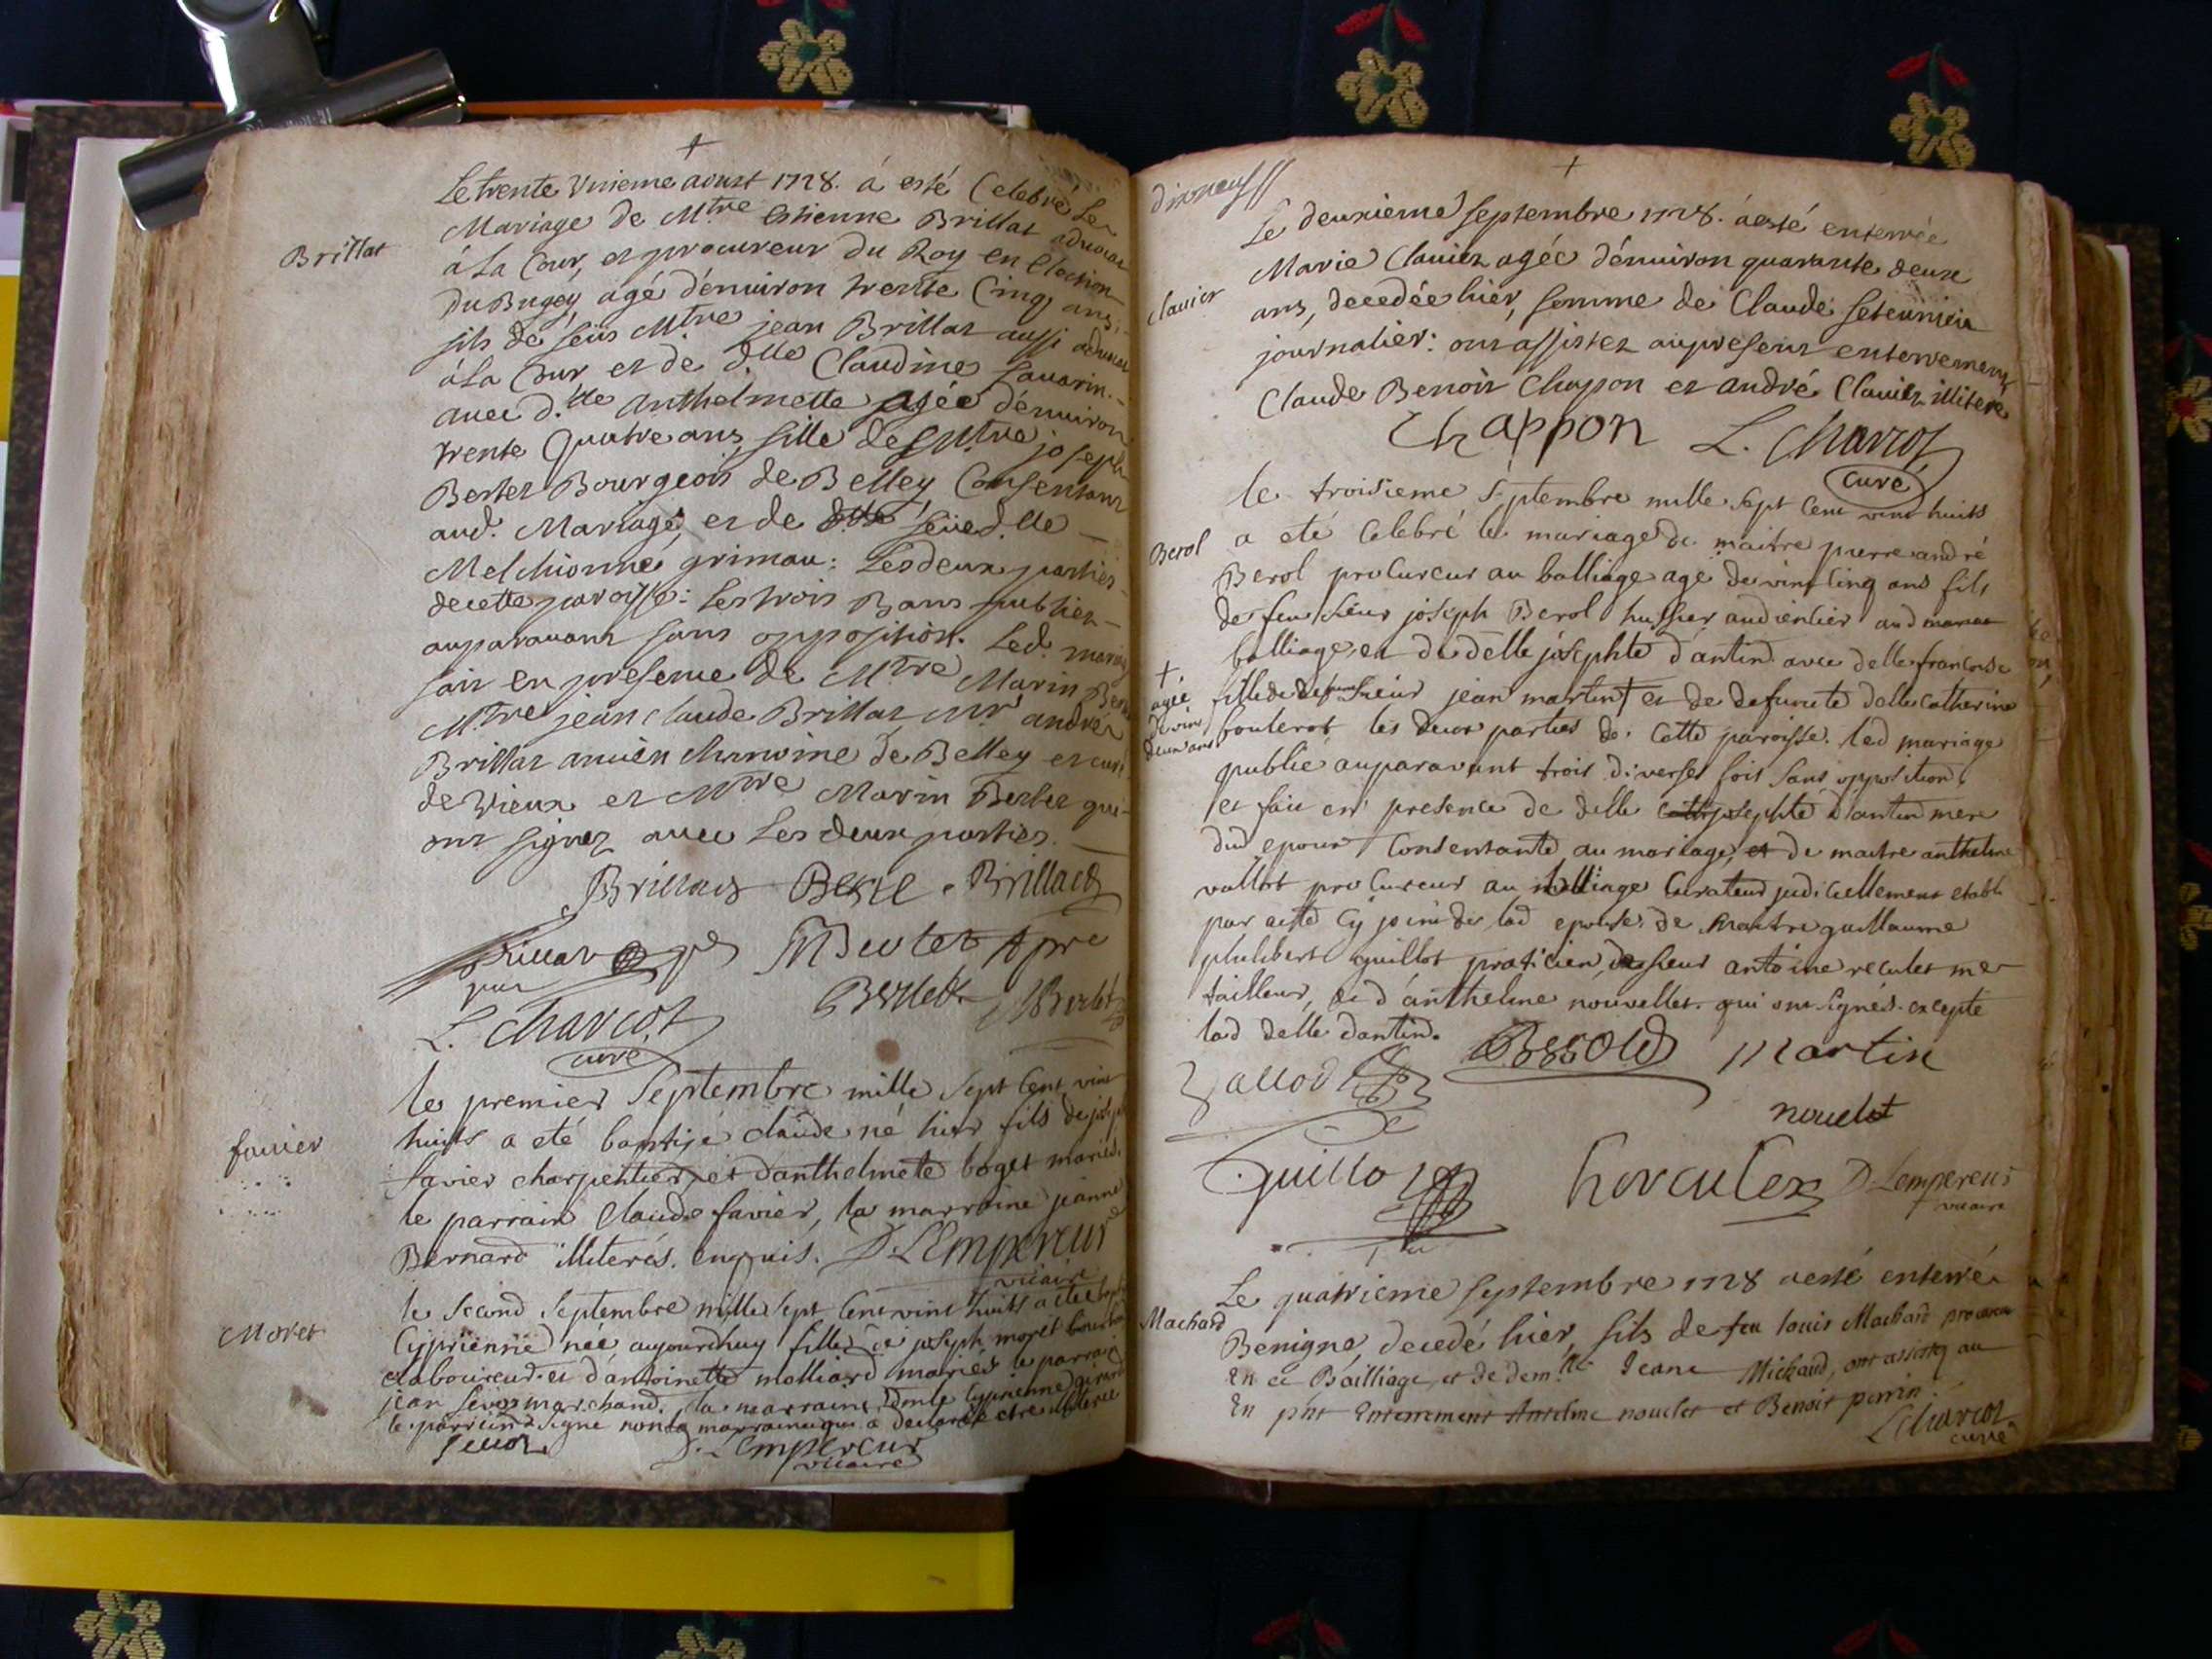 Brillat
Le trente Unieme aoust 1728. á esté Celebré Le
Mariage de Mtre Estienne Brillat advocat
á La Cour, et procureur du Roy en Election
Du Bugey, agé d'enuiron trente Cinq ans,
fils de feüs Mtre jean Brillat aussi advocat
á La Cour et de dlle Claudine Sauarin.
auec d.lle Anthelmette agée d'enuiron
trente Quatre ans, fille de Mtre joseph
Bertet Bourgeois de Belley Consentant
aud. Mariage, et de feüe d.lle
Melchionne grimau: Les deux parties
de cette paroisse: Les trois Bans publiez
auparauant sans opposition. Led. mariage
fait en presence de Mtre Marin
Mtre jean claude Brillat Mr andré
Brillat ancien chanoine de Belley et curé
de Vieux et Mtre Marin Bertet qui
ont signez auec Les deux parties.
Brillat Brillat
MBertet
Bertet MBertet
L. Charcot
curé
fauier
le premier Septembre mille sept Cent vint
huits a eté baptisé claude né hier fils de joseph
favier charpentier, et d'anthelmete boget mariés.
le parrain Claude favier, la marraine jeanne
Bernard illiterés. enquis. D. L'Empereur
vicaire
Moret
le second Septembre mille sept Cent vint huits a eté
Cyprienne née aujourdhuy fille de joseph moret
laboureur et d'antoinette molliard mariés le parrain
jean marchand. la marraine Cyprienne
le parrain a signé non la marraine qui a declaré etre illiterée
D. L'empereur
vicaire
dixneuf
clauier
Le deuxieme Septembre 1728. á esté enterrée
Marie Clauier agée d'enuiron quarante deux
ans, decedée hier, femme de Claude
journalier: ont assistez au present enterrement
Claude Benoit Chappon et andré Clauier illiteré
Chappon L. Charcot
curé
Berol
le troisieme Septembre mille sept Cent vint huits
a eté Celebré le mariage de maitre pierre andré
Berol procureur au balliage agé de vint cinq ans fils
de feu sieur joseph Berol hussier audiencier aud
balliage, et de delle josephte d'antin avec delle francoise
fille de defunt sieur jean martin + et de defunte delle Catherine
+
agée
de vint
deux ans
bouterot les deux parties de Cette paroisse. led mariage
publié auparavant trois diverses fois sans opposition,
et fait en presence de delle josephte d'antin mere
dud epoux Consentante au mariage, et de maitre anthelme
vallot procureur au balliage Curateur judiciellement etabli
par acte Cy joint de lad epouse, de Maitre guillaume
philibert guillot praticien, de sieur antoine reculet me
tailleur, et d'anthelme nouvellet. qui ont signés. excepté
lad delle dantin.
martin
nouelet
Guillot hercules D. Lempereur
vicaire
Machard
Le quatrieme Septembre 1728 á esté enterré
Benigne, decedé hier, fils de feu louis Machard procureur
En ce Bailliage, et de dem.lle Jeane Michaud, ont assistez au
En pñt Enterrement Antelme nouelet et Benoit perrin.
L Charcot
curé